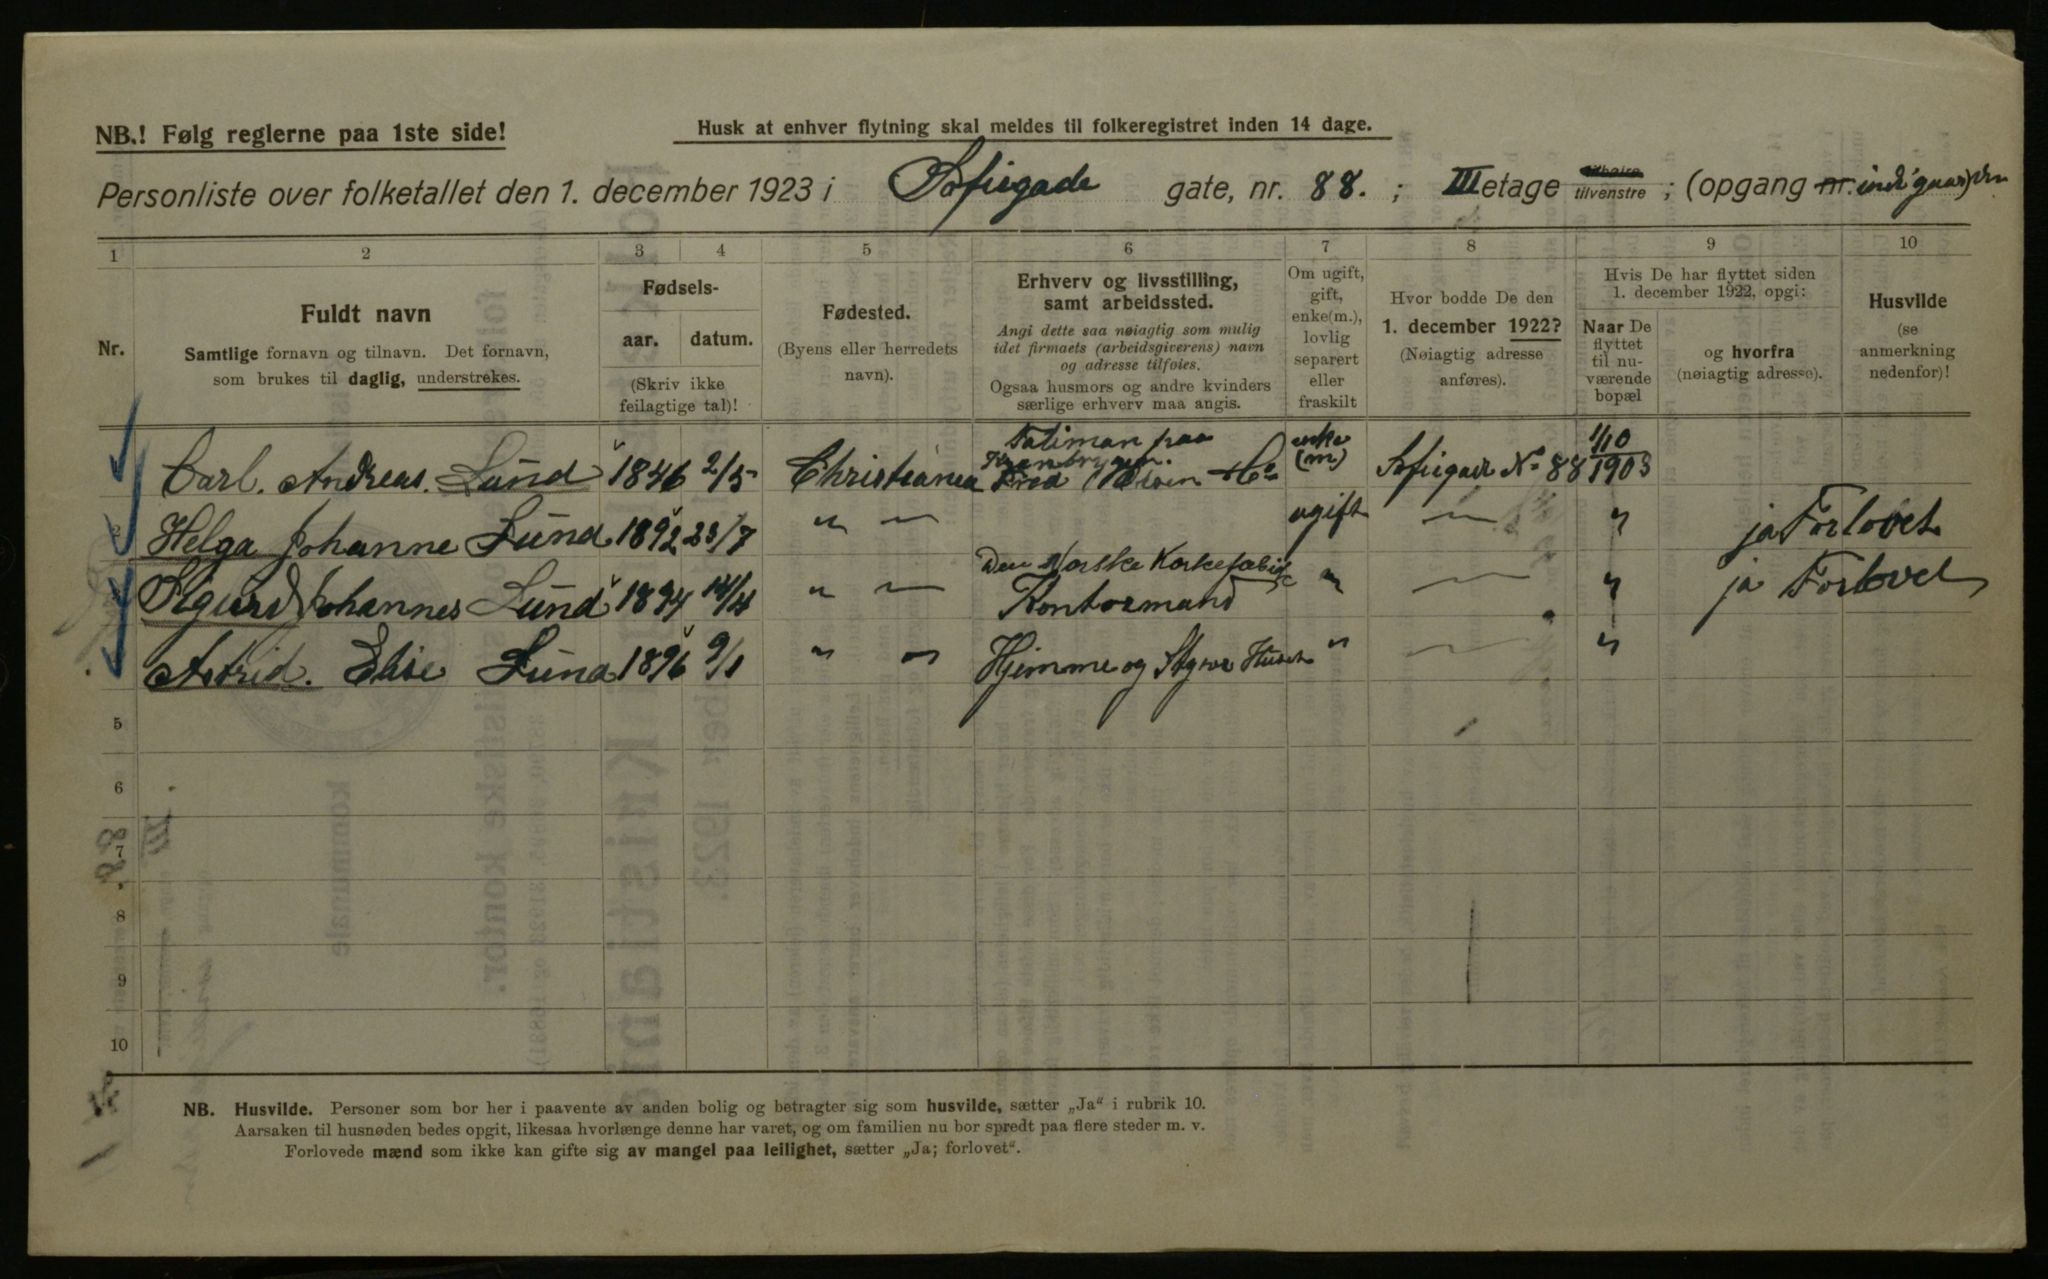 NB.! Følg reglerne paa 1ste side!
Husk at enhver flytning skal meldes til folkeregistret inden 14 dage.
Personliste over folketallet den 1. december 1923 i Sofiegade gate, nr. 88. ; III etage tilhøire tilvenstre ; (opgang nr. ind i gaarden)
1 2 3 4 5 6 7 8 9 10
Nr.
Fuldt navn
Samtlige fornavn og tilnavn. Det fornavn,
som brukes til daglig, understrekes.
Fødsels-
aar. datum.
(Skriv ikke
feilagtige tal)!
Fødested.
(Byens eller herredets
navn).
Erhverv og livsstilling,
samt arbeidssted.
Angi dette saa nøiagtig som mulig
idet firmaets (arbeidsgiverens) navn
og adresse tilføies.
Ogsaa husmors og andre kvinders
særlige erhverv maa angis.
Om ugift,
gift,
enke(m.),
lovlig
separert
eller
fraskilt
Hvor bodde De den
1. december 1922?
(Nøiagtig adresse
anføres).
Hvis De har flyttet siden
1. december 1922, opgi:
Naar De
flyttet
til nu-
værende
bopæl
og hvorfra
(nøiagtig adresse).
Husvilde
(se
anmerkning
nedenfor)!
Carl. Andreas. Lund 1846 2/5 Christiania Taliman paa Kranbryggen. Fred Olsen & Co enke (m) Sofiegade No 88 1/10 1903
2 Helga Johanne Lund 1892 23/7 " — ugift — " ja Forlovet
Sigurd Johannes Lund 1894 14/4 " — Den Norske Korkefabrik Kontormand " — " ja Forlovet
Astrid. Elise Lund 1896 9/1 " — Hjemme og Styrer Huset " — "
5
6
7
8
9
10
NB. Husvilde. Personer som bor her i paavente av anden bolig og betragter sig som husvilde, sætter „Ja" i rubrik 10.
Aarsaken til husnøden bedes opgit, likesaa hvorlænge denne har varet, og om familien nu bor spredt paa flere steder m. v.
Forlovede mænd som ikke kan gifte sig av mangel paa leilighet, sætter „Ja; forlovet".